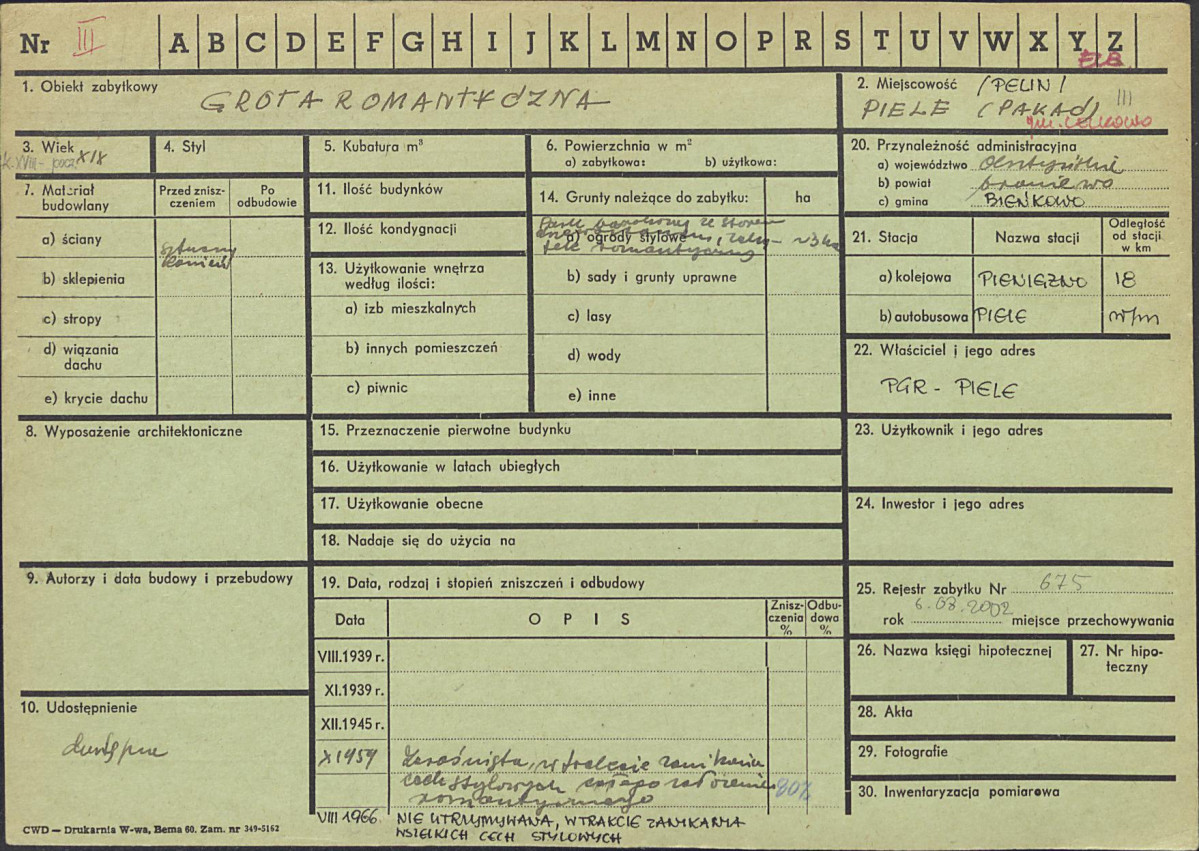 Nr III A B C D E F G H I J K L M N O P R S T U V W X Y Z
ELB.
1. Obiekt zabytkowy
GROTA ROMANTYCZNA
2. Miejscowość /PELIN/
PIELE (PAKAd) III
gm. LELKOWO
3. Wiek
k. XVIII - pocz. XIX
4. Styl
5. Kubatura m³
6. Powierzchnia w m²
a) zabytkowa: b) użytkowa:
7. Materiał budowlany
Przed zniszczeniem
Po odbudowie
a) ściany
sztuczny
kamień
b) sklepienia
c) stropy
d) wiązania dachu
e) krycie dachu
8. Wyposażenie architektoniczne
9. Autorzy i data budowy i przebudowy
10. Udostępnienie
dostępne
11. Ilość budynków
12. Ilość kondygnacji
13. Użytkowanie wnętrza
według ilości:
a) izb mieszkalnych
b) innych pomieszczeń
c) piwnic
14. Grunty należące do zabytku: ha
Park barokowy ze starym
a) ogrody stylowe
romantyczny
~3 ha
b) sady i grunty uprawne
c) lasy
d) wody
e) inne
15. Przeznaczenie pierwotne budynku
16. Użytkowanie w latach ubiegłych
17. Użytkowanie obecne
18. Nadaje się do użycia na
19. Data, rodzaj i stopień zniszczeń i odbudowy
Data OPIS Zniszczenia % Odbudowa %
VIII.1939 r.
XI.1939 r.
XII.1945 r.
X 1959 Zarośnięta, w trakcie zanikania
cech stylowych całego założenia 80%
romantycznego
VIII 1966. NIE UTRZYMYWANA, W TRAKCIE ZANIKANIA
WSZELKICH CECH STYLOWYCH
20. Przynależność administracyjna
a) województwo olsztyńskie
b) powiat braniewo
c) gmina BIEŃKOWO
21. Stacja Nazwa stacji Odległość od stacji w km
a) kolejowa PIENIĘŻNO 18
b) autobusowa PIELE w/m
22. Właściciel i jego adres
PGR - PIELE
23. Użytkownik i jego adres
24. Inwestor i jego adres
25. Rejestr zabytku Nr 675
rok 6.08.2002 miejsce przechowywania
26. Nazwa księgi hipotecznej
27. Nr hipoteczny
28. Akta
29. Fotografie
30. Inwentaryzacja pomiarowa
CWD — Drukarnia W-wa, Bema 60. Zam. nr 349-5162